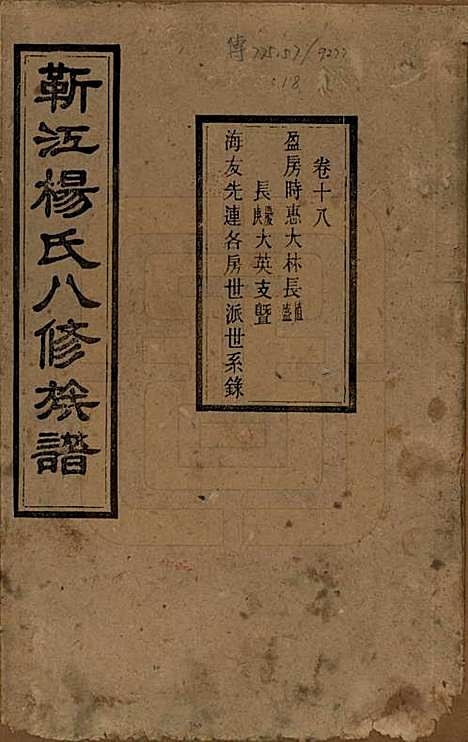 靳江楊氏八修族譜
卷十八
盈房時惠大林長植盛
長慶庚大英支暨
海友先連各房世派世系錄